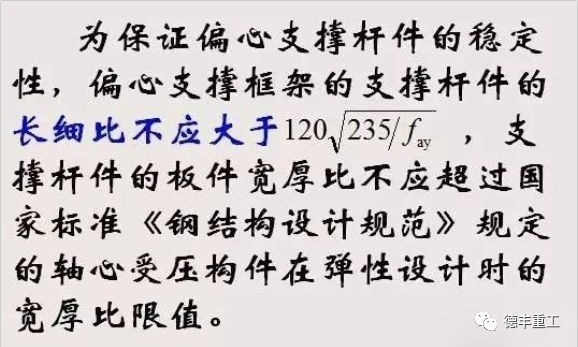 为保证偏心支撑杆件的稳定
性，偏心支撑框架的支撑杆件的
长细比不应大于120√235/fay ，支
撑杆件的板件宽厚比不应超过国
家标准《钢结构设计规范》规定
的轴心受压构件在弹性设计时的
宽厚比限值。
德丰重工